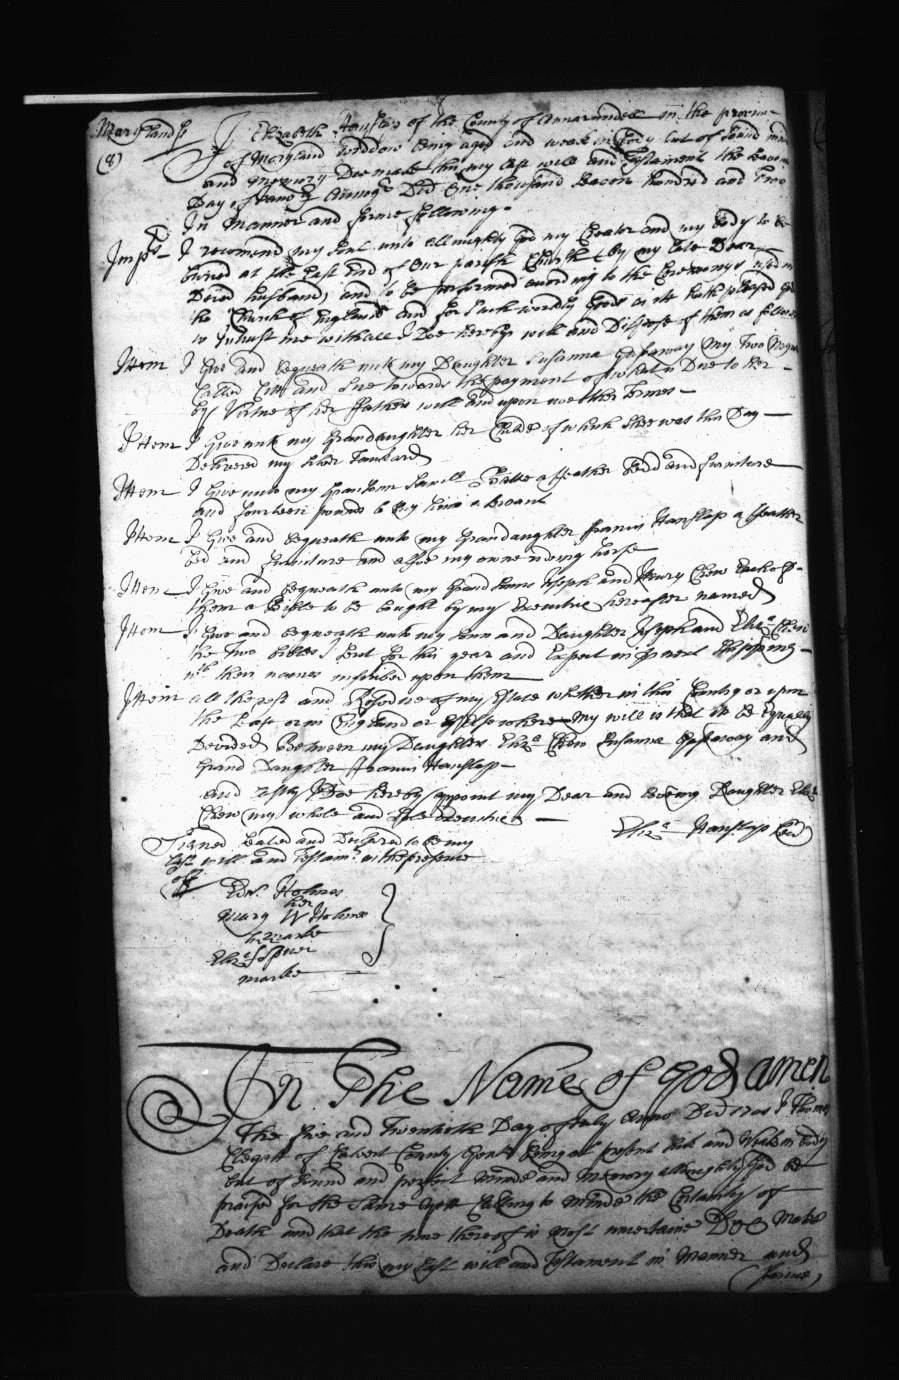 Maryland ss
(8) I Elizabeth Hanslap of the County of Annarundel in the provin-
of Maryland Widdow being aged and weak in Body but of Sound mind
and memory Doe make this my last will and Testament the
Day of Anno Dni One thousand Seaven hundred and Two
In Manner and forme following.
Imps I recomend my Soul unto allmighty God my Creator and my Body to be
buried at the East End of Our parish Church by my late Dear
Decd husband, and to be performed according to the Ceremonys used in
the Church of England and for Such wordly Goods as it hath pleased God
to Intrust me withall I Doe hereby will and Dispose of them as follows
Item I Give and bequeath unto my Daughter Susanna Gassaway My Two Negros
Called and Sue towards the payment of what is Due to her
by Virtue of her ffathers will and upon noe other termes
Item I Give unto my Grandaughter her Child of which Shee was this Day
Delivered my Silver Tankard
Item I Give unto my a ffeather Bedd and furniture
and fourteen pounds to buy him a
Item I Give and bequeath unto my Grandaughter Francis Hanslap a ffeather
bed and furniture and allsoe my owne rideing horse
Item I Give and bequeath unto my Grand Sons Joseph and Henry Chew Each of
them a Bible to be bought by my Executrix hereafter named
Item I Give and bequeath unto my Sonn and Daughter Joseph and Eliza Chew
the two bibles I Sent for this year and Expect in next Shipping
with their names inscribed upon them
Item all the rest and Resedue of my Estate whether in this Country or upon
the Seas or in England or Elsewhere My will is that it be Equally
Devided Between my Daughters Eliza Chew Susanna Gassaway and
Grand Daughter Francis Hanslap
and Lastly I Doe hereby appoint my Dear and loveing Daughter Eliza
Chew my whole and Sole Executrix Eliza Hanslap Seal
Signed Sealed and Declared to be my
last will and Testamt in the presence
off
Edw. Holmes
her
Mary W Holmes
marke
Eliza Spicer
marke
In The Name of God amen
The five and Twentieth Day of July Anno Dni 1701 I Thomas
of Calvert County Gent being at present Sick and Weak in body
but of Sound and perfect Minde and Memory allmighty God be
praised for the Same Yett Calling to Minde the Certainty of
Death and that the time thereof is most uncertaine Doe Make
and Declare this my last will and Testament in Manner and
forme